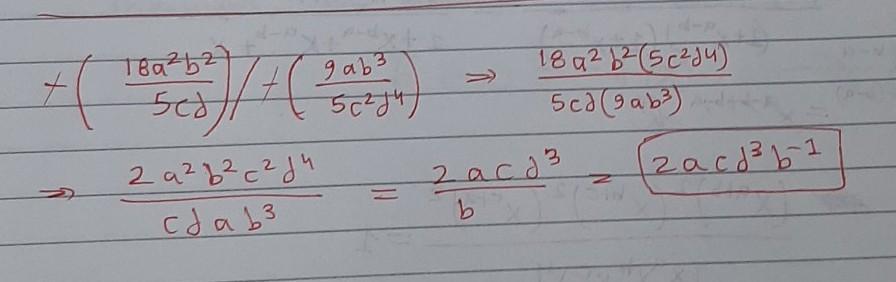 +(18a²b²/5cd)/+(9ab³/5c²d⁴) ⇒ 18a²b²(5c²d4)/5cd(9ab³)
⇒ 2a²b²c²d⁴/cdab³ = 2acd³/b = 2acd³b⁻¹